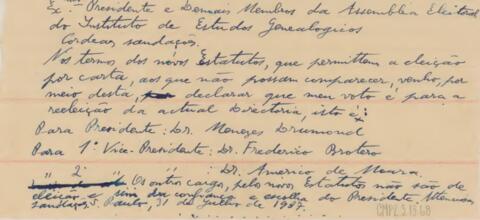 Exmos Presidente e Demais Membros da Assembléa Eleitoral
do Instituto de Estudos Genealogicos
Cordeaes saudações.
Nos termos dos novos Estatutos, que permittem a eleição
por carta, aos que não possam comparecer, venho, por
meio desta, declarar que meu voto é para a
reeleição da actual Directoria, isto é:
Para Presidente: Dr. Menezes Drumond
Para 1º Vice-Presidente: Dr. Frederico Brotero
" 2º " " : Dr. Americo de Moura.
Os outros cargos, pelos novos Estatutos não são de
eleição e sim da confiança e escolha do Presidente. Attenciosas
saudações. S. Paulo, 31 de Julho de 1937.